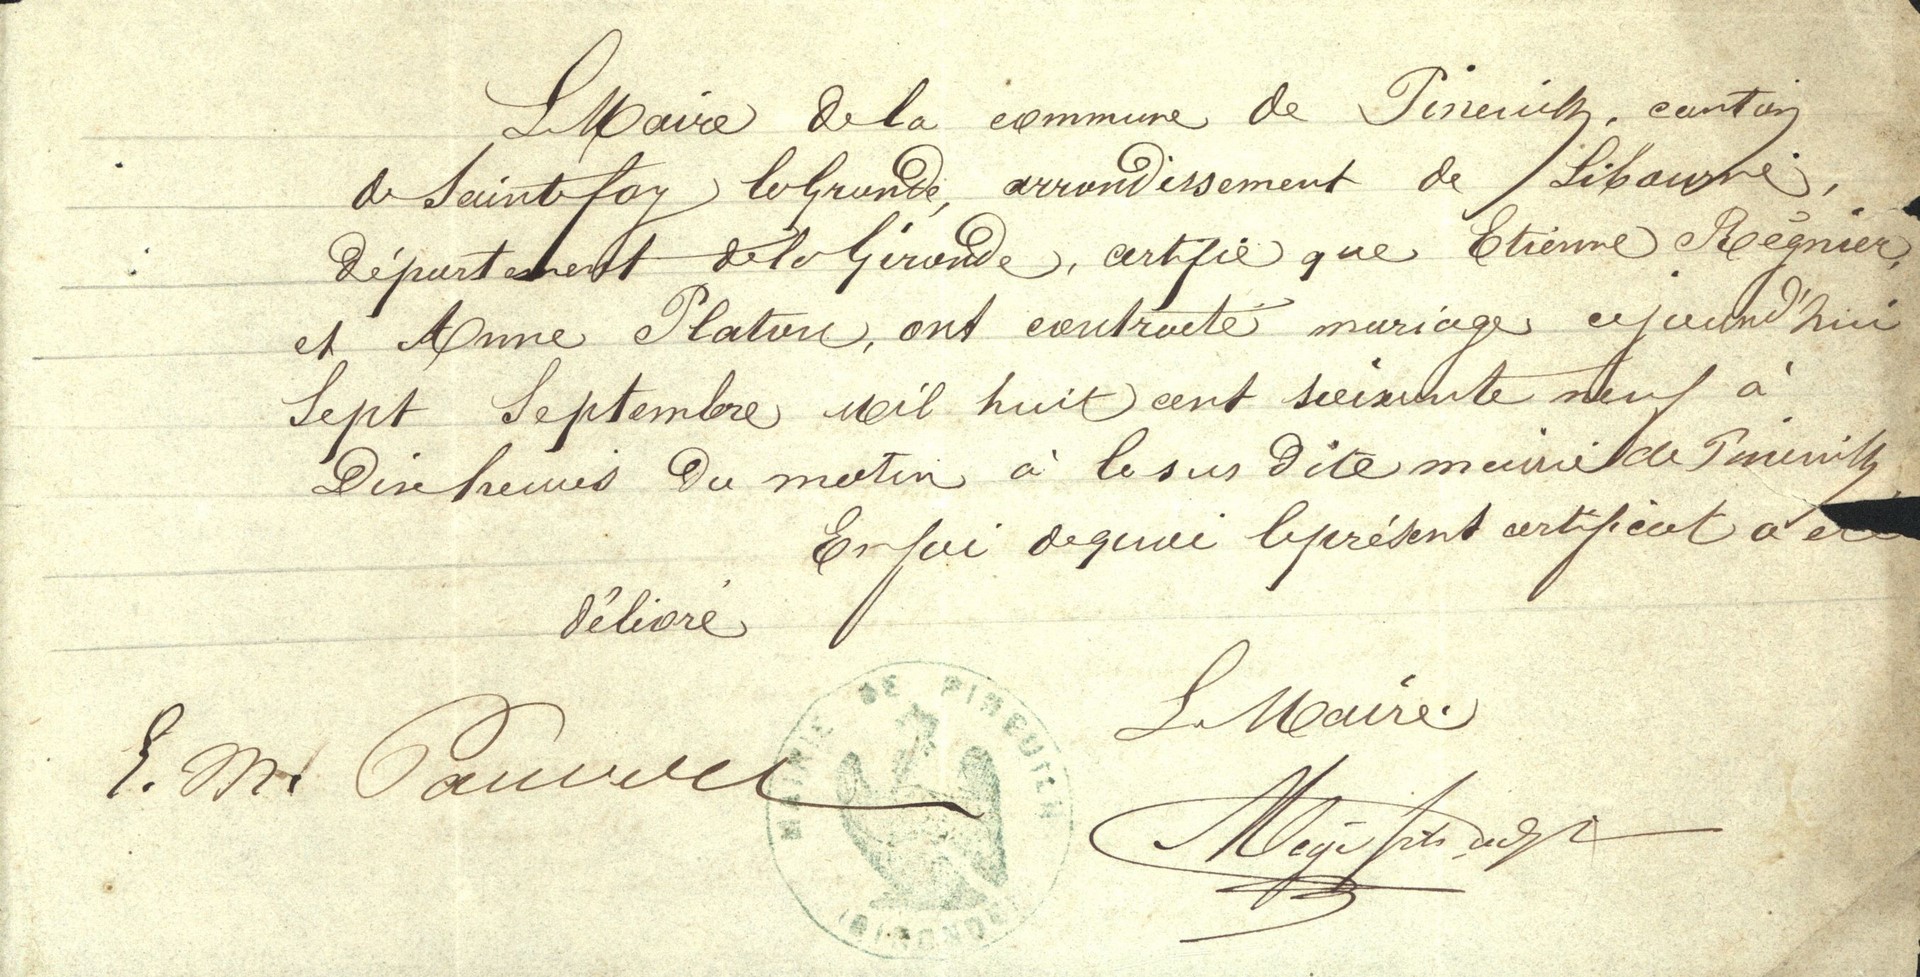 Le Maire de la commune de Pineuilh, canton
de Sainte foy la Grande, arrondissement de Libourne,
département de la Gironde, certifie que Etienne Régnier,
et Anne Platon, ont contracté mariage aujourd'hui
Sept Septembre mil huit cent soixante neuf à
Dix heures du matin à la sus dite mairie de Pineuilh
En foi de quoi le présent certificat a été
délivré
Le Maire
E. M.
MAIRIE DE PINEUILH
(GIRONDE)